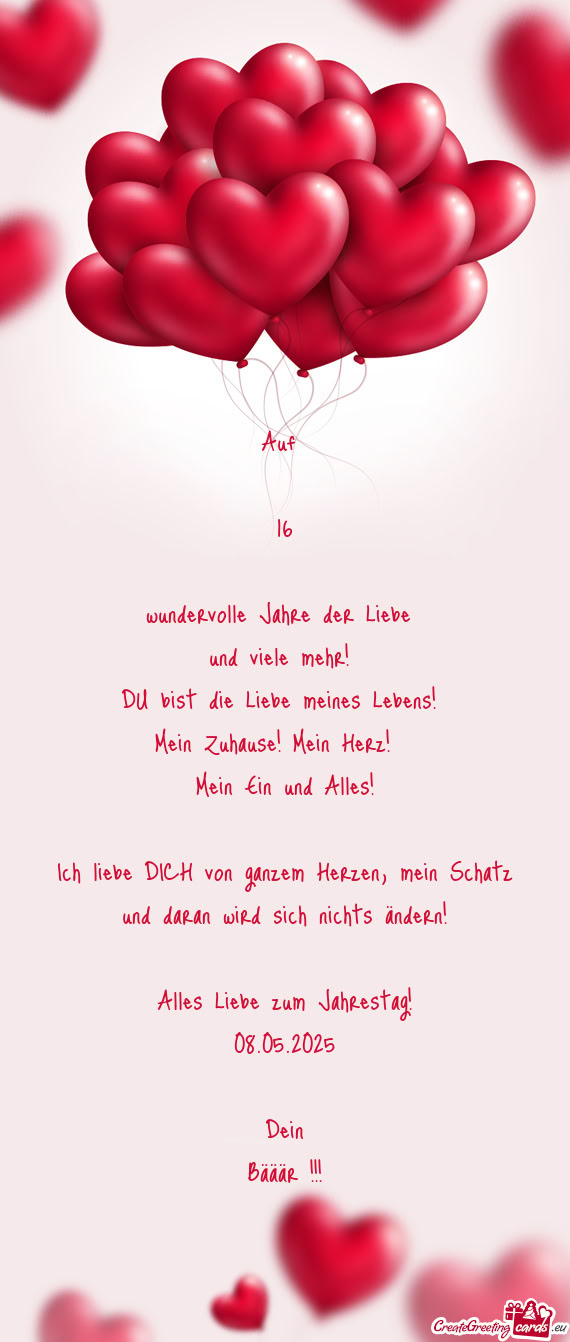 Auf
16
wundervolle Jahre der Liebe
und viele mehr!
DU bist die Liebe meines Lebens!
Mein Zuhause! Mein Herz!
Mein Ein und Alles!
Ich liebe DICH von ganzem Herzen, mein Schatz
und daran wird sich nichts ändern!
Alles Liebe zum Jahrestag!
08.05.2025
Dein
Bääär !!!
CreateGreeting cards .eu